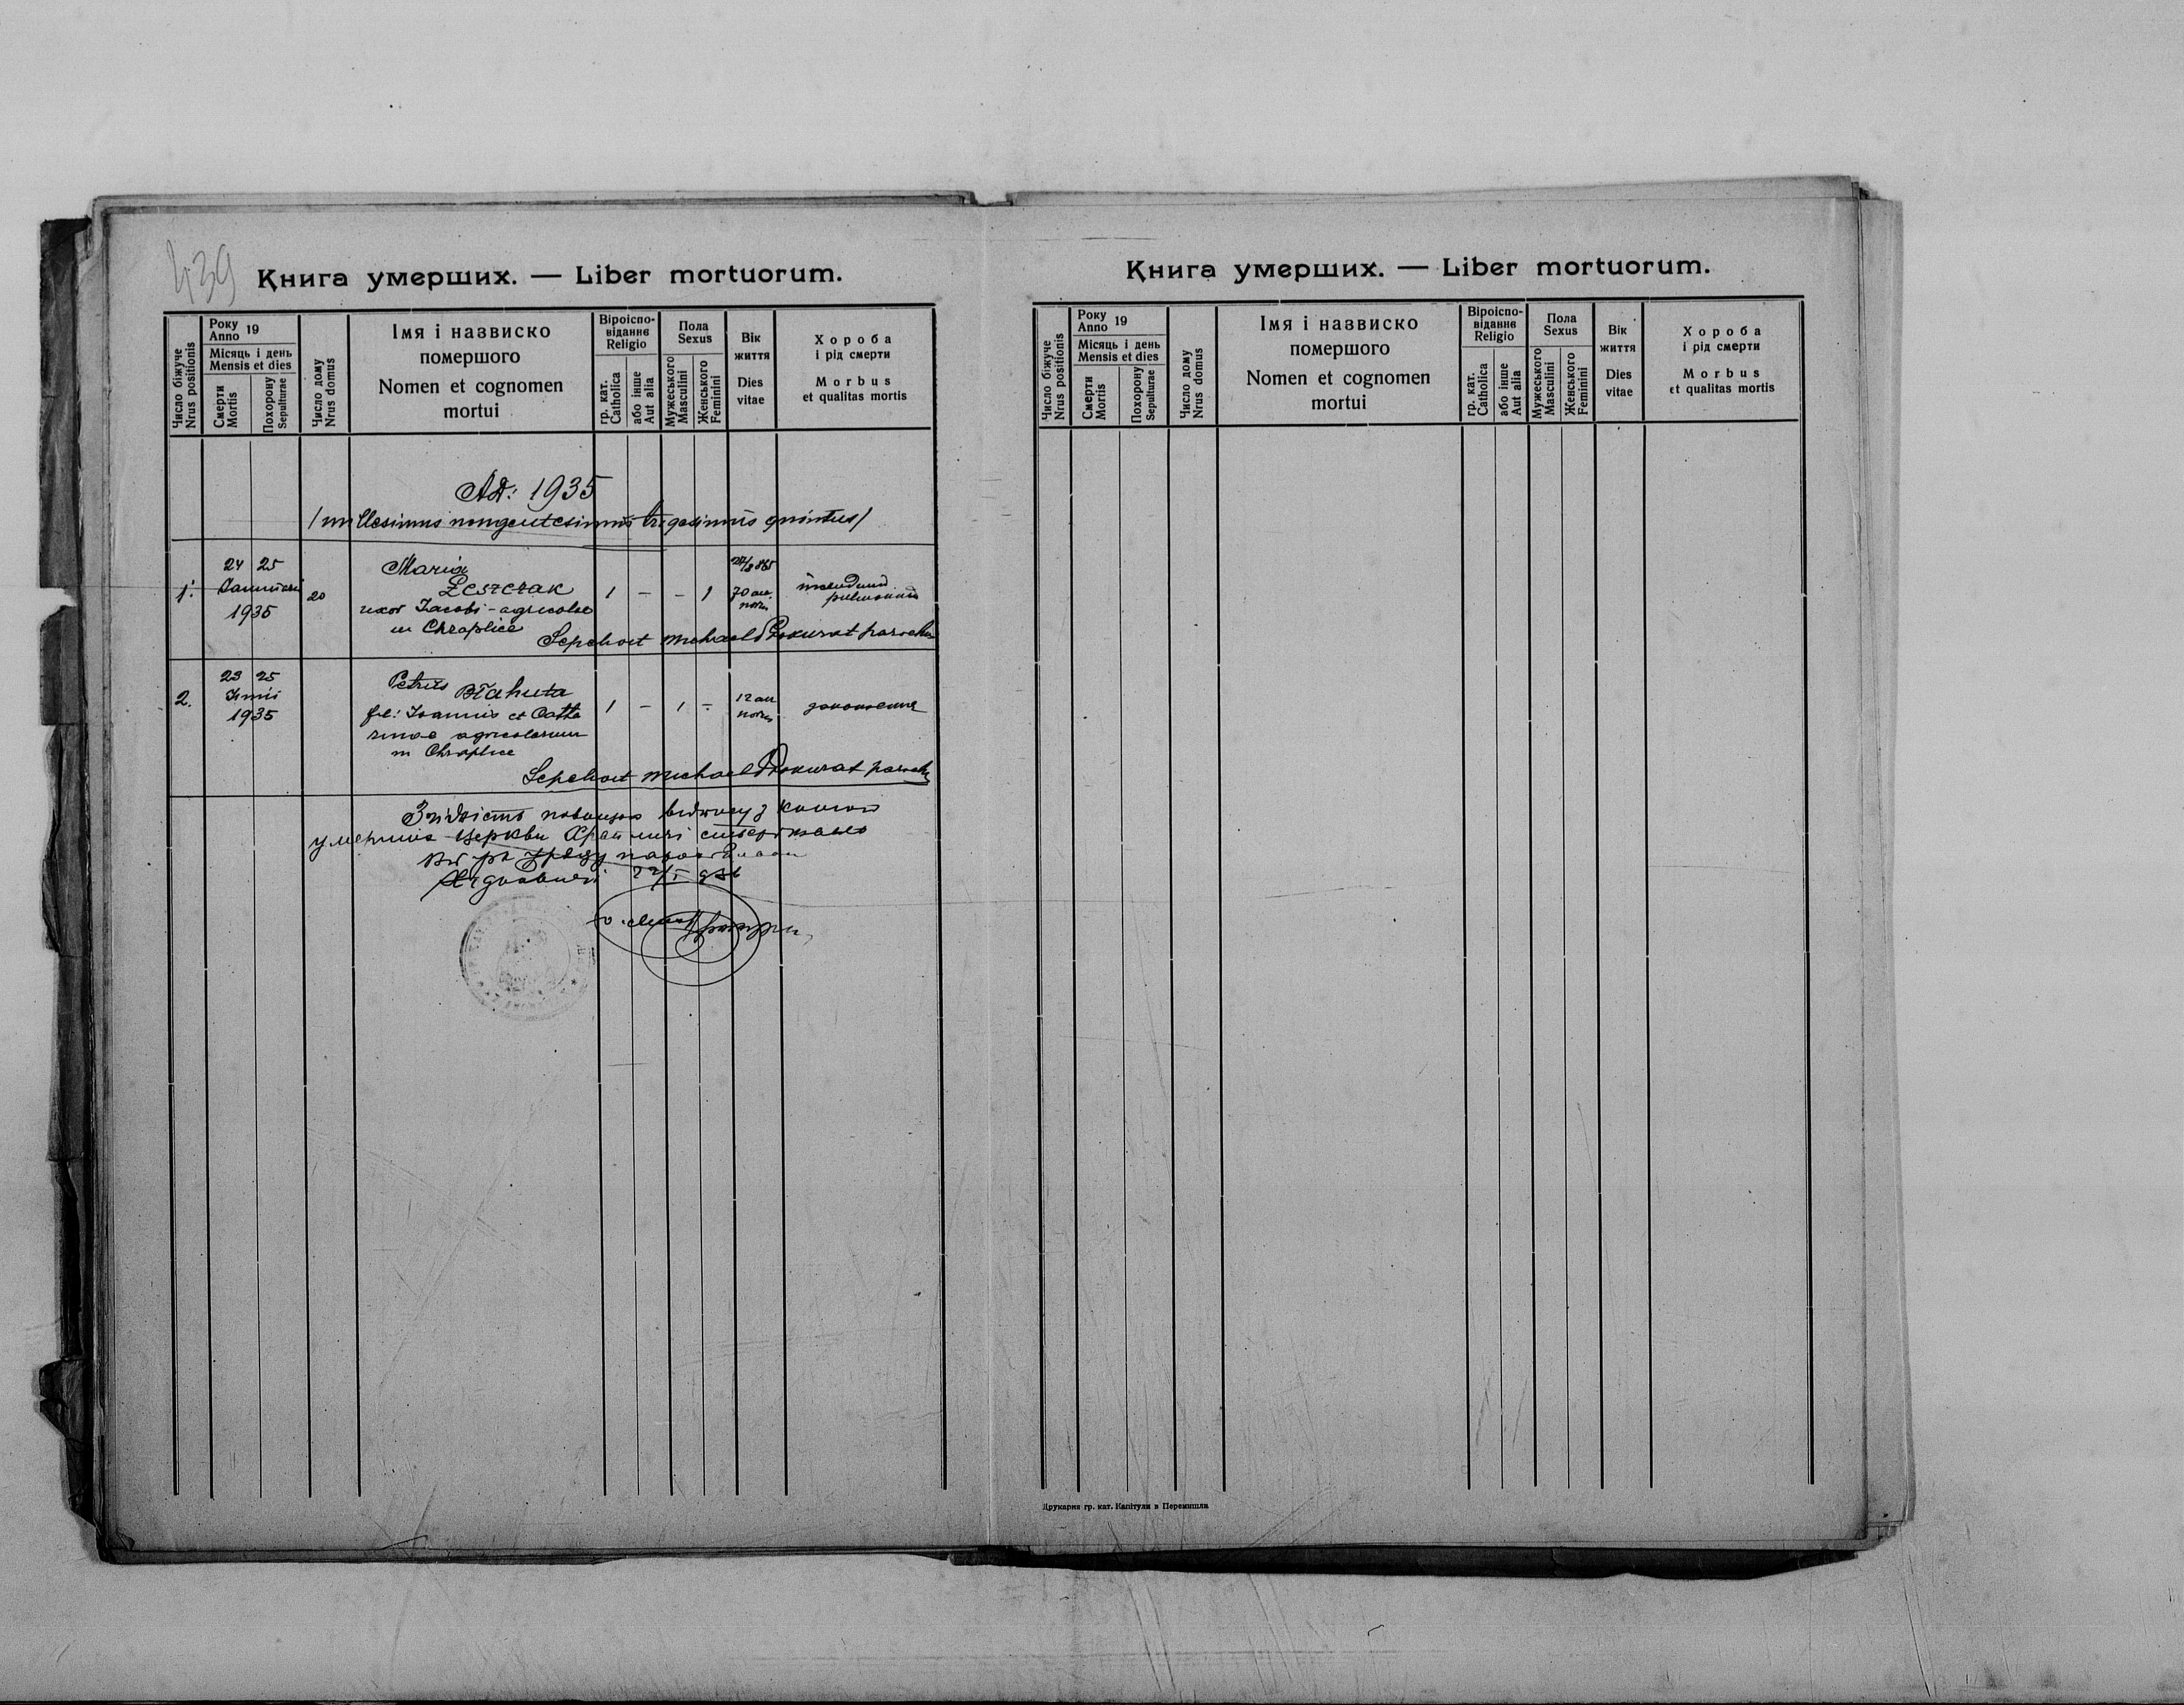 439
Книга умерших. — Liber mortuorum.
Число біжуче
Nrus positionis
Року
Anno 19
Місяць і день
Mensis et dies
Смерти
Mortis
Похорону
Sepulturae
Число дому
Nrus domus
Імя і назвиско
помершого
Nomen et cognomen
mortui
Віроіспо-
віданнє
Religio
гр. кат.
Catholica
або інше
Aut alia
Пола
Sexus
Мужеського
Masculini
Женського
Feminini
Вік
життя
Dies
vitae
Хороба
і рід смерти
Morbus
et qualitas mortis
AD: 1935
/millesimus nongentesimus trigesimus quintus/
1.
24 25
Januarii
1935
20
Maria
Leszczak
uxor Jacobi - agricolae
in Chraplice
1 — — 1
70 an.
norum
pulmonum
Sepelivit Michael Prokurat parochus
2.
23 25
Junii
1935
Petrus Błahuta
fil: Joannis et Catha
rinae agricolarum
in Chraplice
1 — 1 —
12 an
norum
Sepelivit Michael Prokurat parochus
Згідність повищого витягу з книгою
умерших церкви Храпличі стверджаю
22/I 936
Книга умерших. — Liber mortuorum.
Число біжуче
Nrus positionis
Року
Anno 19
Місяць і день
Mensis et dies
Смерти
Mortis
Похорону
Sepulturae
Число дому
Nrus domus
Імя і назвиско
помершого
Nomen et cognomen
mortui
Віроіспо-
віданнє
Religio
гр. кат.
Catholica
або інше
Aut alia
Пола
Sexus
Мужеського
Masculini
Женського
Feminini
Вік
життя
Dies
vitae
Хороба
і рід смерти
Morbus
et qualitas mortis
Друкарня гр. кат. Капітули в Перемишли